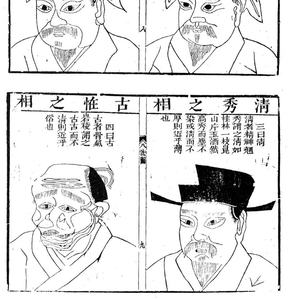 清秀之相
三曰清
清者精神翹
秀謂之清如
桂林一枝崑
山片玉洒然
高秀而塵不
染或清而不
厚則近乎薄
也
九
古怪之相
四曰古
古者骨氣
岩稜謂之
古古而不
清則近乎
俗也